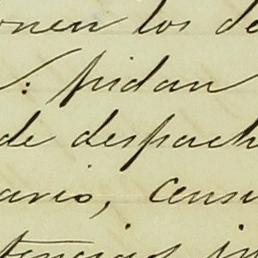 onen los de
: pidan
de despach
ario, censu
tencias in